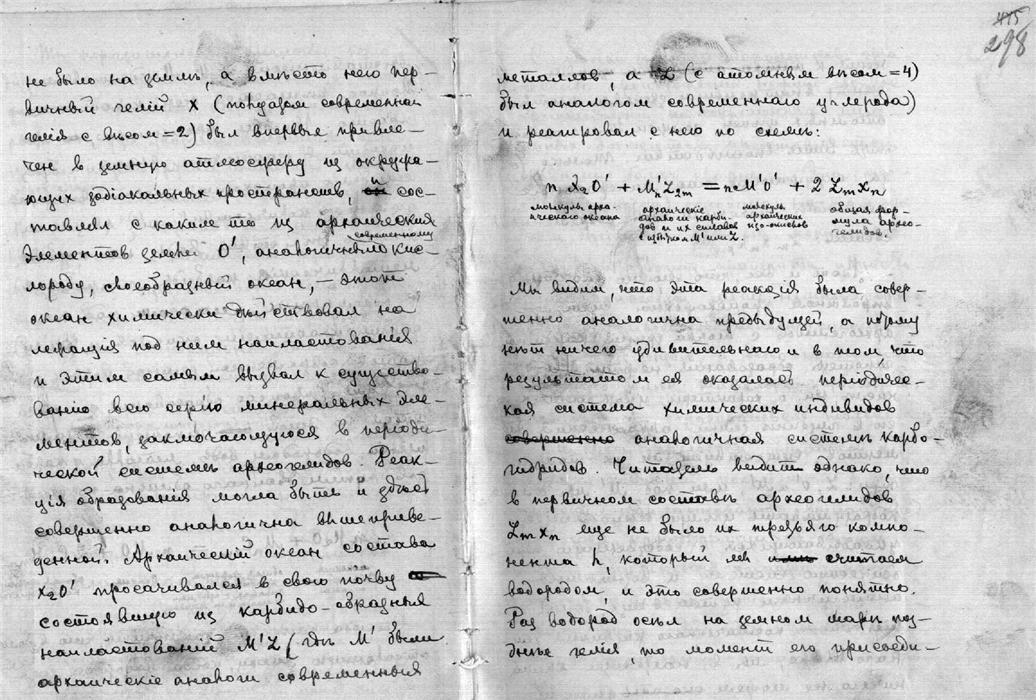 415
298
не было на землѣ, а вмѣсто него пер-
вичный гелій x (полуатом современнаго
гелія с вѣсом=2) был впервые привле-
чен в земную атмосферу из окружа-
ющих зодіакальных пространств, и сос-
тавлял с каким то из архаических
элементов земли O', аналогичным современному кис-
лороду, своеобразный океан, — этот
океан химически дѣйствовал на
лежащія под ним напластованія
и этим самым вызвал к существо-
ванію всю серію минеральных эле-
ментов, заключающуюся в періоди-
ческой системѣ археогелидов. Реак-
ція образованія могла быть и здѣсь
совершенно аналогична вышеприве-
денной. Архаическій океан состава
x₂O' просачивался в свою почву
состоявшую из карбидо-образных
напластованій M'Z (гдѣ M' были
архаическіе аналоги современных
металлов, а Z (с атомным вѣсом=4)
был аналогом современнаго углерода)
и реагировал с него по схемѣ:
n x₂O' + M'ₙZ₂ₘ = n M'O' + 2 Zₘxₙ
молекулы архаи-
ческаго океана
архаическіе
аналоги карби-
дов и их сплавов
с избытком M' или Z.
молекулы
архаических
изо-окислов
общая фор-
мула архео-
гелидов.
Мы видим, что эта реакція была совер-
шенно аналогична предыдущей, а потому
нѣт ничего удивительнаго и в том, что
результатом ея оказалась періодичес-
кая система химических индивидов
совершенно аналогичная системѣ карбо-
гидридов. Читатель видит однако, что
в первичном составѣ археогелидов
Zₘxₙ еще не было их третьяго компо-
нента h, который мы считаем
водородом, и это совершенно понятно.
Раз водород осѣл на земном шарѣ поз-
днѣе гелія, то момент его присоеди-